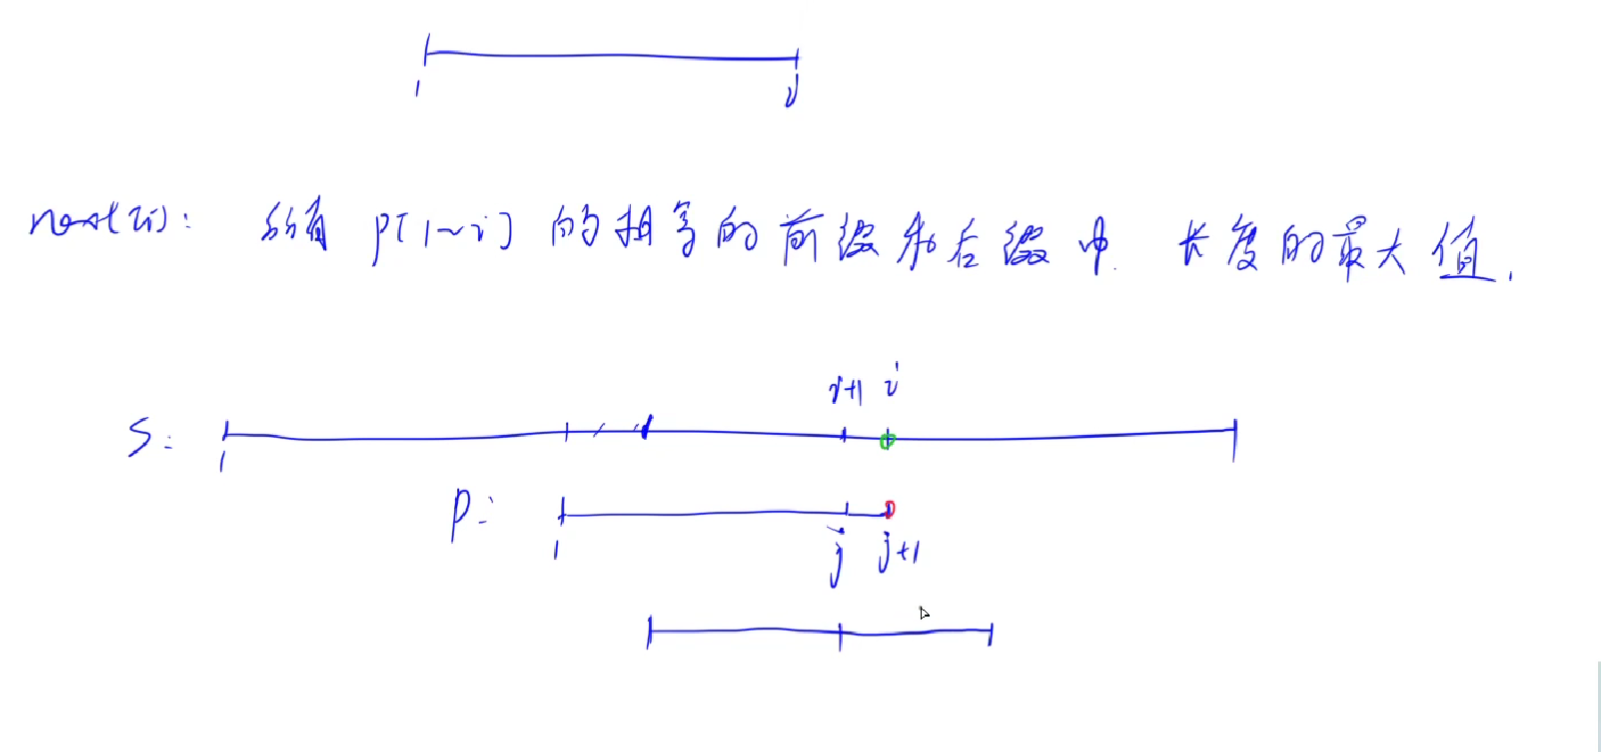 1 j
next[i]: 所有 p[1~i] 的相等的前缀和后缀中 长度的最大值.
i+1 i
S:
1
p:
1 j j+1